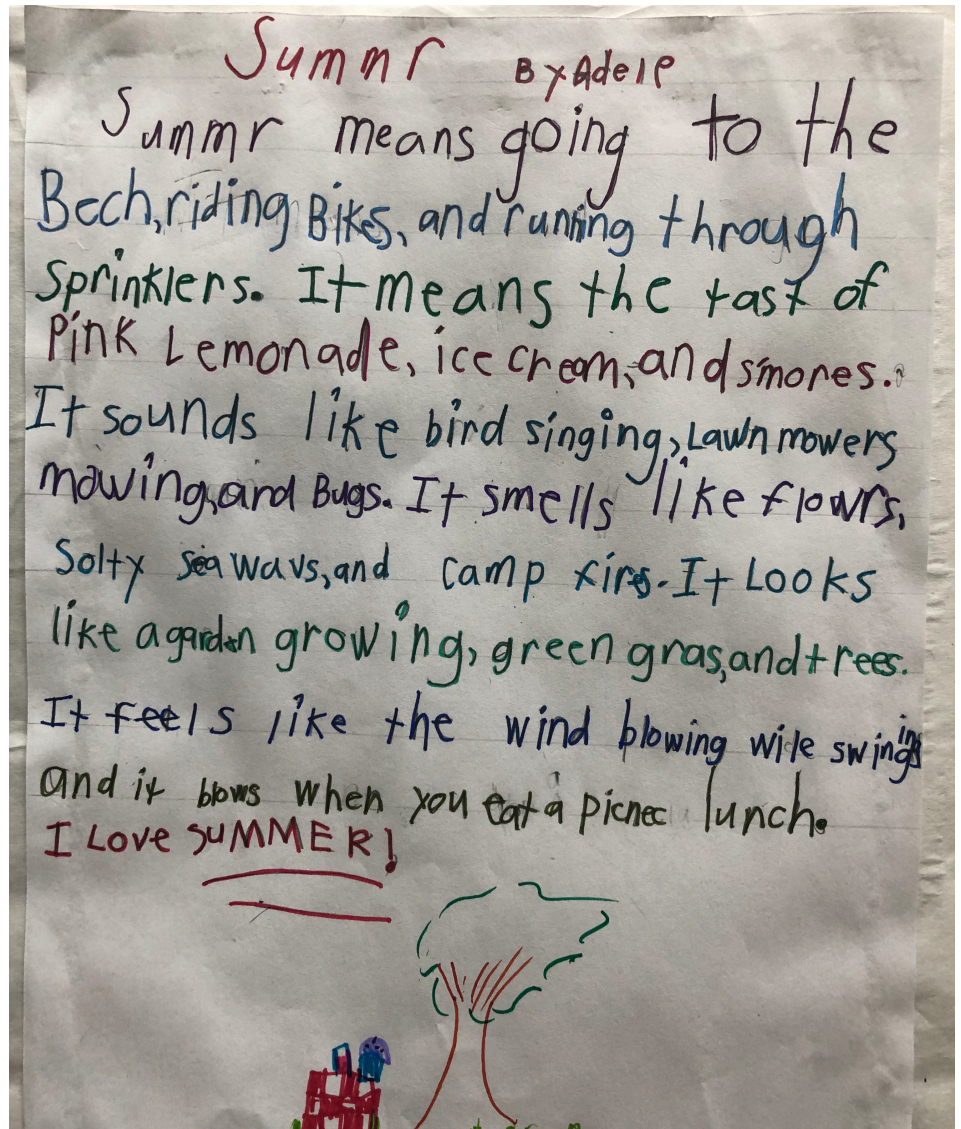 Summr By Adele
Summr means going to the
Bech, riding Bikes, and running through
Sprinklers. It means the tast of
Pink Lemonade, ice cream, and s'mores.
It sounds like bird singing, Lawn mowers
mowing, and Bugs. It smells like flowrs,
Solty sea wavs, and camp firs. It Looks
like a garden growing, green gras, and trees.
It feels like the wind blowing wile swinging
and it blows when you eat a picnec lunch.
I Love SUMMER!